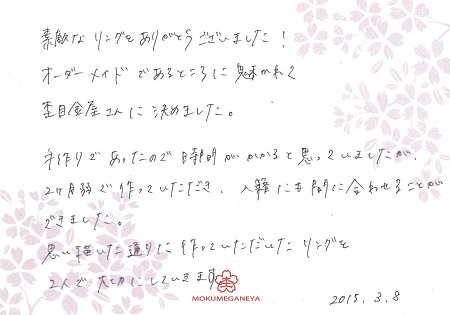 素敵なリングをありがとうございました！
オーダーメイドであるところに魅かれて
杢目金屋さんに決めました。
手作りであったので時間がかかると思っていましたが、
2ヶ月弱で作っていただき、入籍にも間に合わせることが
できました。
思い描いた通りに作っていただいたリングを
2人で大切にしていきます
MOKUMEGANEYA
2015.3.8